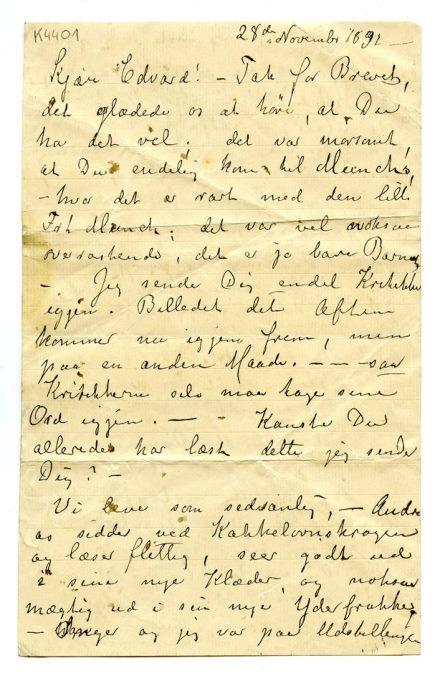 K4401
28de Novembr 1891 —
Kjære Edvard! – Tak for Brevet,
det glædede os at høre, at Du
har det vel. det var morsomt,
at Du endelig kom til Munchs,
– hvor det er rart med den lille
Frk Munch; det var vel noksaa
overraskende, det er jo bare Barnet
– Jeg sender Dig endel Kritikker
igjen. Billedet det Aften
kommer nu igjen frem, men
paa en anden Maade. – – – saa
Kritikkerne selv maa tage sine
Ord igjen. – Kanske Du
allerede har læst dette jeg sender
Dig? –
Vi lever som sedvanlig, – Andre
as sidder ved Kakkelovnskrogen
og læser flittig, seer godt ud
i sine nye Klæder, og noksaa
mægtig ud i sin nye Yderfrakke,
– Inger og jeg var paa Udstillingen